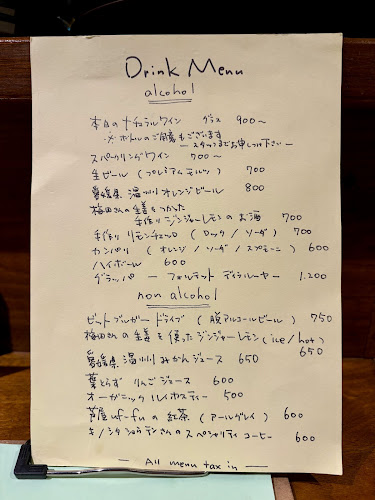 Drink Menu
alcohol
本日のナチュラルワイン グラス 900〜
※ボトルのご用意もございます
— スタッフまでお申しつけ下さい —
スパークリングワイン 700〜
生ビール (プレミアムモルツ) 700
愛媛県 温州オレンジビール 800
梅田さんの生姜をつかった
手作りジンジャーレモンのお酒 700
手作り リモンチェッロ (ロック / ソーダ) 700
カンパリ (オレンジ / ソーダ / スプモーニ) 600
ハイボール 600
グラッパ — フォルテット デッラルーヤー 1.200
non alcohol
ビートブルガー ドライブ (脱アルコールビール) 750
梅田さんの生姜を使ったジンジャーレモン (ice / hot)
650
愛媛県 温州みかんジュース 650
葉とらず りんごジュース 600
オーガニック ルイボスティー 500
芦屋uf-fuの紅茶 (アールグレイ) 600
キノシタショウテンさんのスペシャリティコーヒー 600
— All menu tax in —